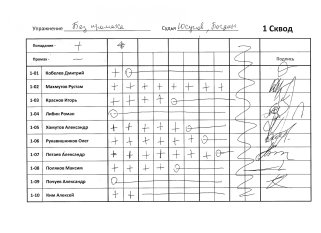 Упражнения Без промаха Судьи Юсупов, Богдан 1 Сквод
Попадание - + +
Промах - — Подпись
1-01 Кобелев Дмитрий + o
1-02 Махмутов Рустам + + + + + + + +
1-03 Краснов Игорь + + + + o
1-04 Лобин Роман o
1-05 Хамутов Александр + + + + + + o
1-06 Рукавишников Олег + + + + + + + o
1-07 Пегаев Александр + + + + + + + o
1-08 Поляков Максим + + + o
1-09 Почуев Александр o
1-10 Ким Алексей + o